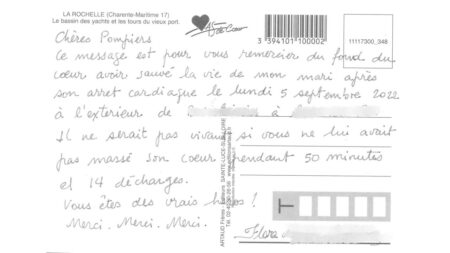 LA ROCHELLE (Charente-Maritime 17)
Le bassin des yachts et les tours du vieux port.
3 394101 100002
11117300_348
Chères Pompiers
Ce message est pour vous remercier du fond du
cœur avoir sauvé la vie de mon mari après
son arret cardiaque le lundi 5 septembre 2022
à l'exterieur de
à
Il ne serait pas vivant si vous ne lui avait
pas massé son coeur pendant 50 minutes
et 14 décharges.
Vous êtes des vrais héros !
Merci. Merci. Merci.
Flora
ARTAUD Frères / Editeurs